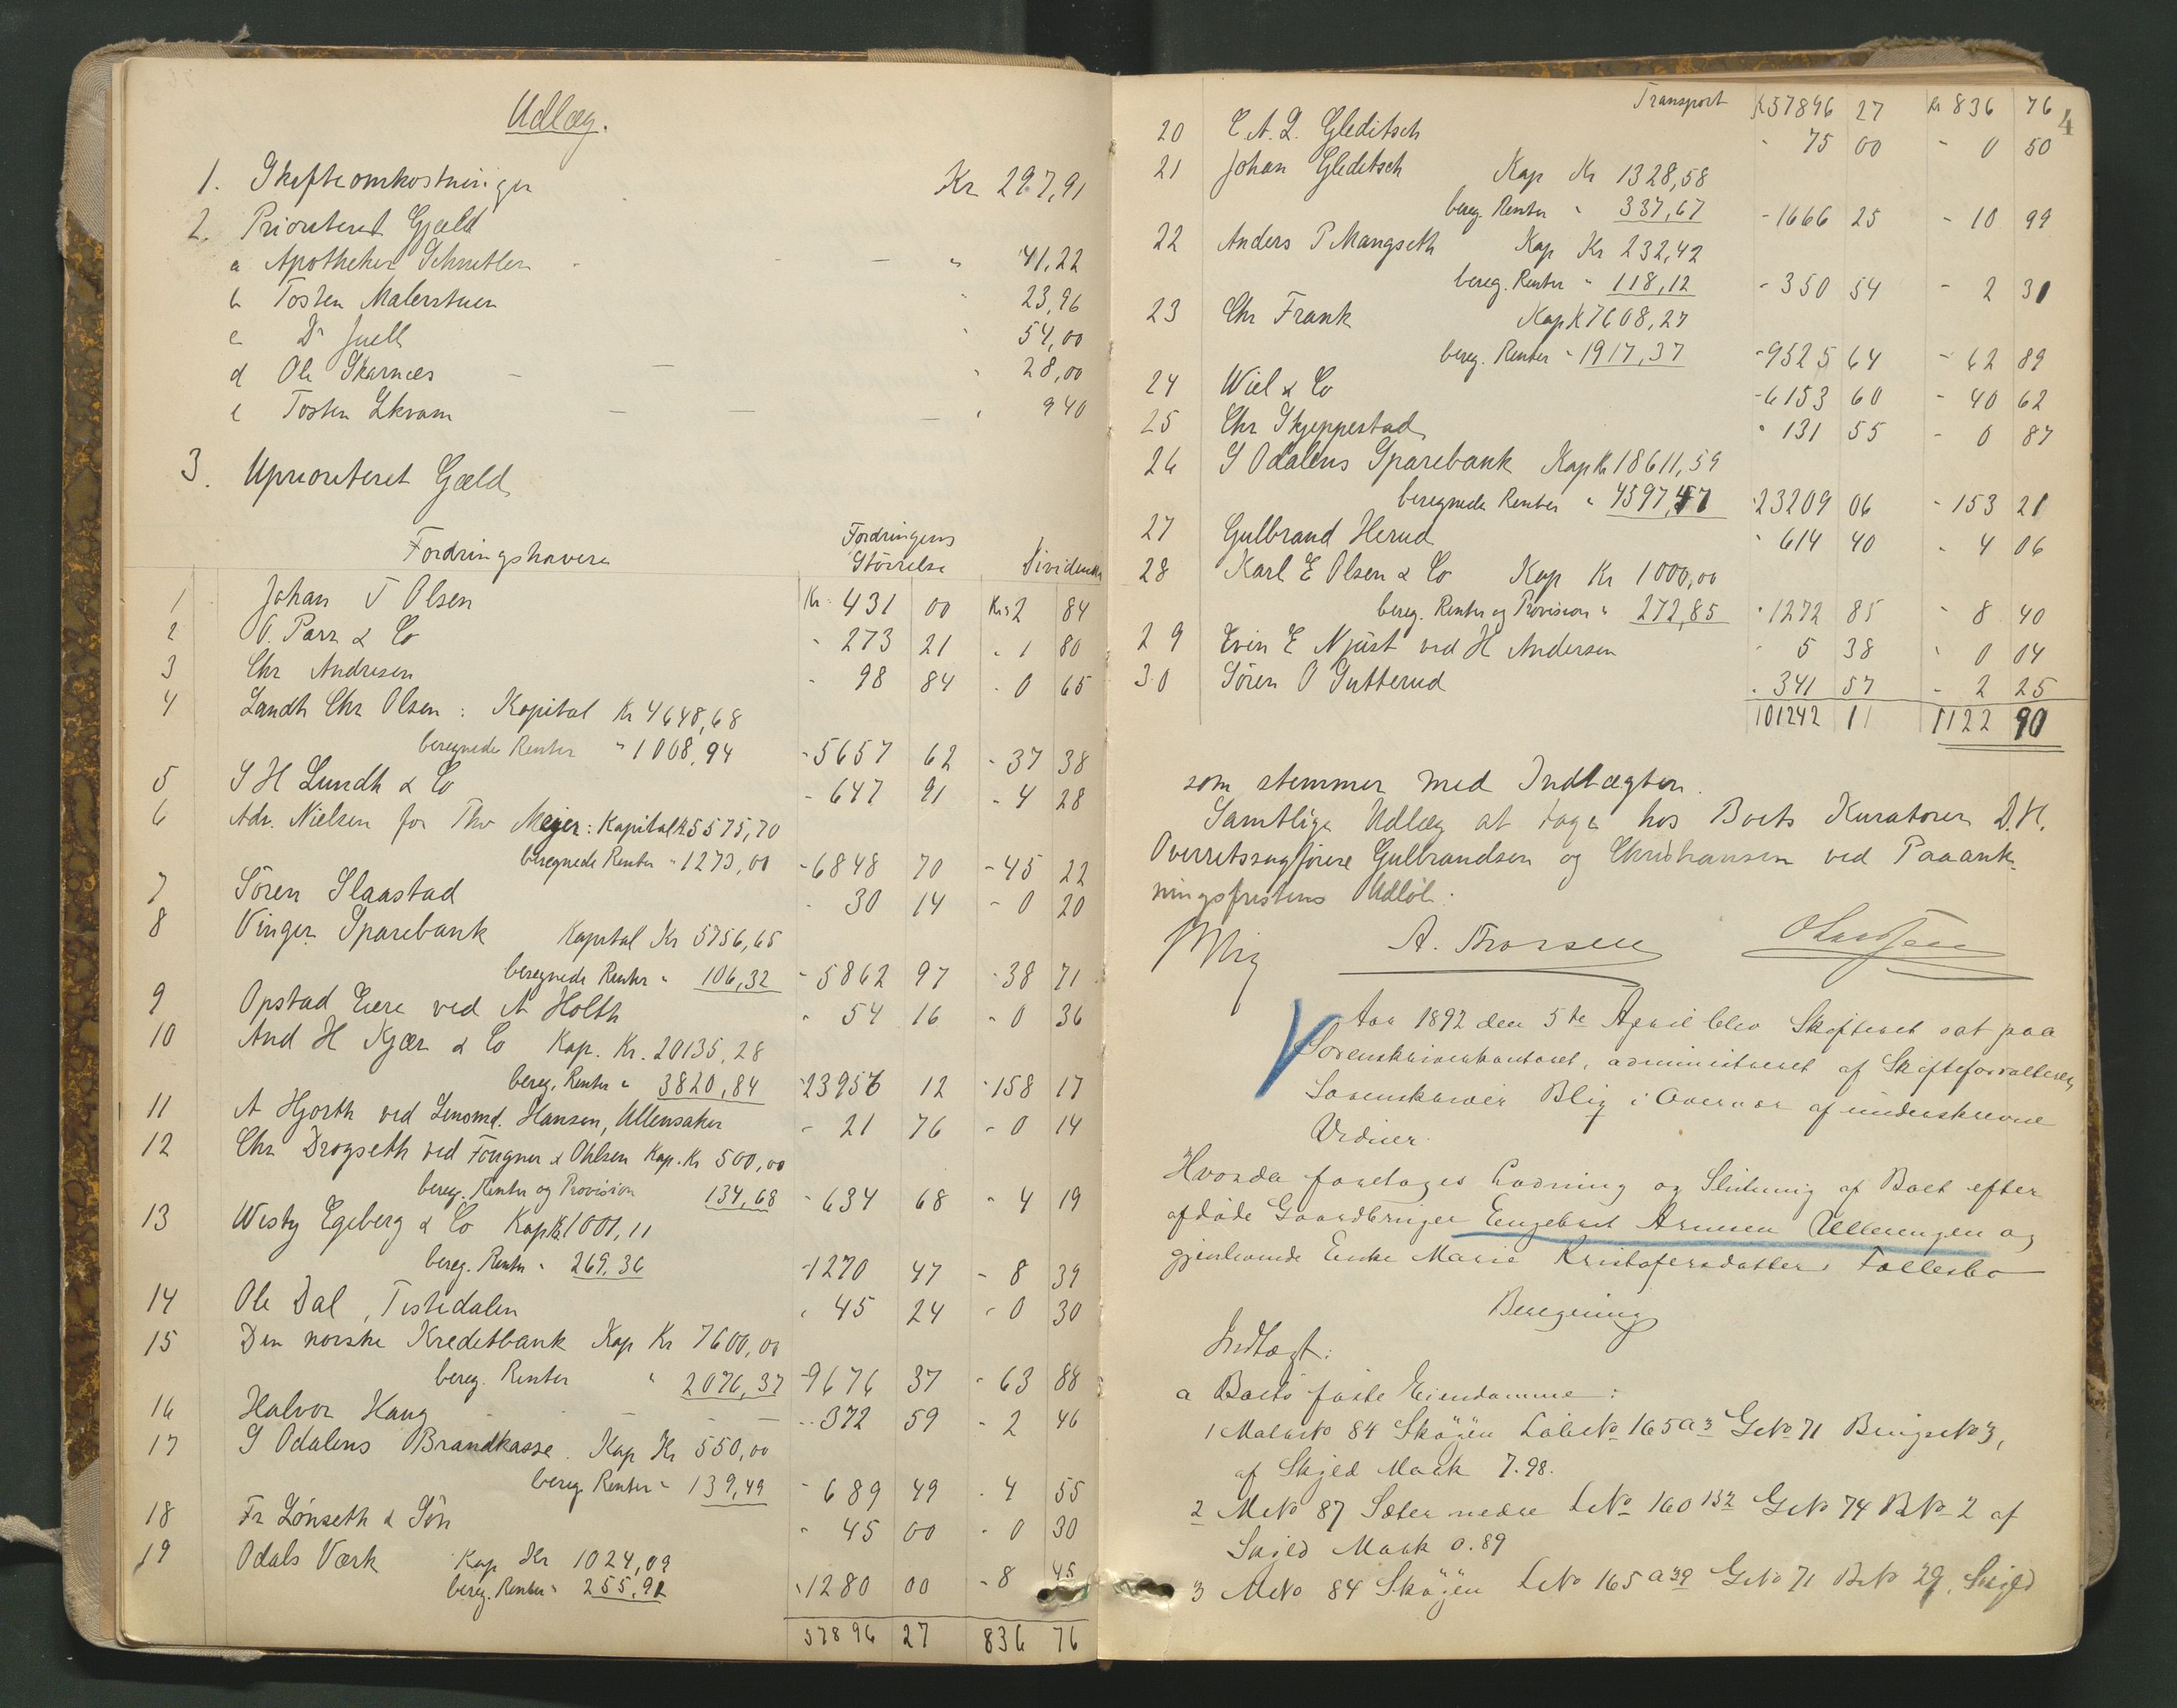 Udlæg.
1. Skifteomkostninger Kr 297,91
2. Prioriteret Gjæld
a Apotheker Schnitler - - - " 41,22
b Tosten Malerstuen " 23,96
c Dr Juell " 54,00
d Ole Skarnæs - - " 28,00
e Tosten Ekram - - - " 9 40
3. Uprioriteret Gæld
Fordringshavere Fordringens Størrelse Dividende
1 Johan T Olsen Kr. 431 00 Kr. 2 84
2 O. Parr & Co - 273 21 - 1 80
3 Chr Andresen - 98 84 - 0 65
4 Landh Chr Olsen : Kapital Kr 4648,68
beregnede Renter " 1008,94 - 5657 62 - 37 38
5 S H Lundh & Co - 647 91 - 4 28
6 Adv. Nielsen for Thv Meyer : Kapital K 5575,70
beregnede Renter " 1273,00 - 6848 70 - 45 22
7 Sören Slaastad - 30 14 - 0 20
8 Vinger Sparebank Kapital Kr 5756,65
beregnede Renter " 106,32 - 5862 97 - 38 71
9 Opstad Eiere ved A Holth " 54 16 - 0 36
10 And H Kjær & Co Kap. Kr. 20135,28
bereg. Renter " 3820,84 - 23956 12 - 158 17
11 A Hjorth ved Lensmd. Hansen, Ullensaker - 21 76 - 0 14
12 Chr Drogseth ved Fougner & Ohlsen Kap. Kr 500,00
bereg. Renter og Provision 134,68 - 634 68 - 4 19
13 Westy Egeberg & Co Kap K. 1001,11
bereg. Renter " 269,36 - 1270 47 - 8 39
14 Ole Dal, Tistedalen " 45 24 - 0 30
15 Den norske Kreditbank Kap Kr 7600,00
bereg. Renter " 2076,37 - 9676 37 - 63 88
16 Halvor Haug - - - 372 59 - 2 46
17 S Odalens Brandkasse. Kap Kr 550,00
bereg Renter " 139,49 - 689 49 - 4 55
18 Fr Lönseth & Sön " 45 00 - 0 30
19 Odals Værk Kap Kr 1024,09
bereg. Renter " 255,91 - 1280 00 - 8 45
57896 27 836 76
4
Transport K 57896 27 Kr 836 76
20 C. A. L. Gleditsch - 75 00 - 0 50
21 Johan Gleditsch Kap Kr 1328,58
bereg. Renter " 337,67 - 1666 25 - 10 99
22 Anders P Mangseth Kap Kr 232,42
bereg. Renter " 118,12 - 350 54 - 2 31
23 Chr Frank Kap K 7608,27
bereg. Renter " 1917,37 - 9525 64 - 62 89
24 Wiel & Co - 6153 60 - 40 62
25 Chr Skjeppestad " 131 55 - 0 87
26 S Odalens Sparebank Kap K 18611,59
beregnede Renter " 4597,47 - 23209 06 - 153 21
27 Gulbrand Herud " 614 40 - 4 06
28 Karl E Olsen & Co Kap Kr 1000,00
bereg. Renter og Provision " 272,85 - 1272 85 - 8 40
29 Even E Njust ved H Andersen - 5 38 - 0 04
30 Sören O Gutterud - 341 57 - 2 25
101242 11 1122 90
som stemmer med Indtægten.
Samtlige Udlæg at tage hos Boets Kuratorer D.H.
Overretssagförere Gulbrandsen og Christiansen ved Paaank-
ningsfristens Udløb.
Blig A. Thorsen
Aar 1892 den 5te April blev Skifteret sat paa
Sorenskriverkontoret, administreret af Skifteforvalteren,
Sorenskriver Blig i Overvær af underskrevne
Vidner.
Hvorda foretoges Lodning og Slutning af Boet efter
afdöde Gaardbruger Engebret Arnesen Ullerengen og
gjenlevende Enke Marie Kristofersdatter,
Beregning
Indtægt:
a Boets faste Eiendomme :
1 Matr No 84 Skøyen Løbe No 165a3 G No 71 Brugs No 3,
af Skyld Mark 7.98.
2 M No 87 Sæter nedre L No 160 132 G No 74 B No 2 af
Skyld Mark 0.89
3 M No 84 Skøyen L No 165a39 G No 71 B No 29, Skyld